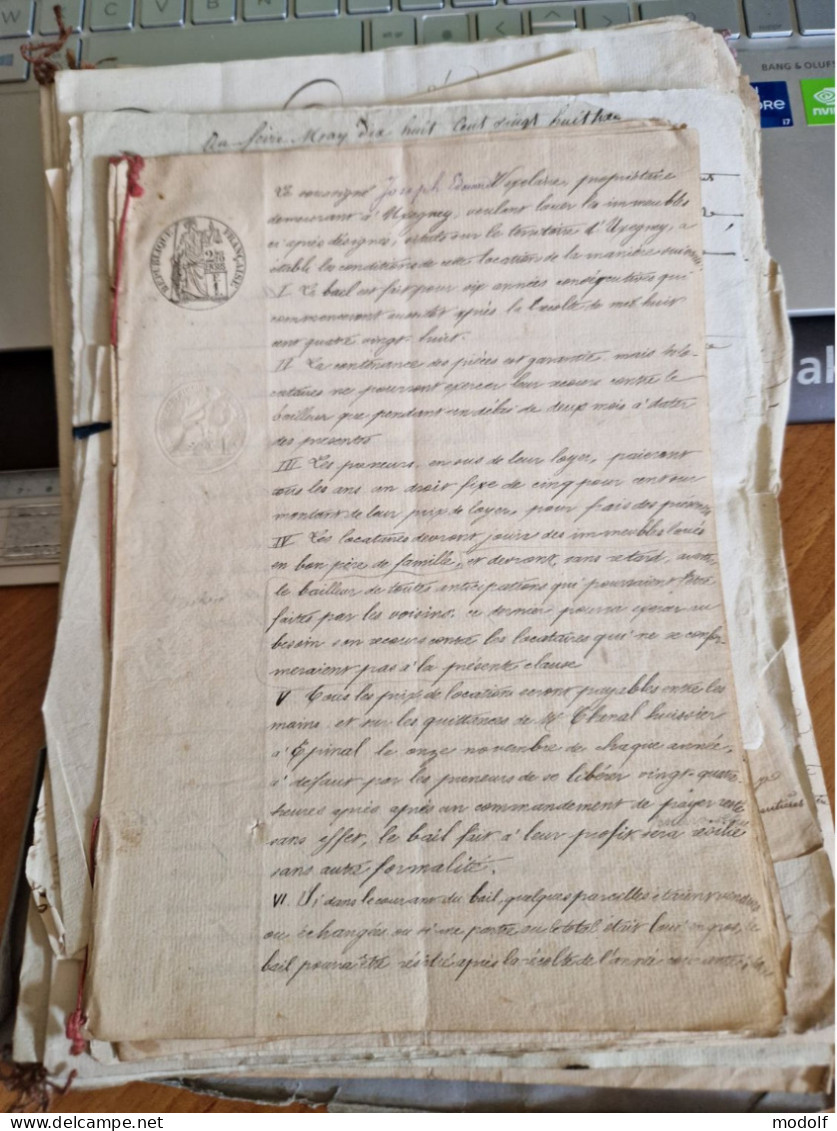 BANG & OLUFS
CORE
i7
NVI
Au soire May dix huit Cent vingt huit
RÉPUBLIQUE FRANÇAISE
Le soussigné Joseph propriétaire
demeurant à Uxegney, voulant louer les immeubles
ci après désignés, situés sur le territoire d'Uxegney, a
établi les conditions de cette location de la manière suivante
I Le bail est fait pour six années consécutives qui
commenceront après la récolte de mil huit
cent quatre vingt huit.
II La contenance des pièces est garantie, mais les lo-
cataires ne pourront exercer leur recours contre le
bailleur que pendant un délai de deux mois à dater
des présentes
III Les preneurs, en sus de leur loyer, paieront
tous les ans un droit fixe de cinq pour cent sur
montant de leur prix de loyer, pour frais des présentes
IV Les locataires devront jouir des immeubles loués
en bon père de famille, et devront, sans retard, avertir
le bailleur de toutes anticipations qui pourraient être
faites par les voisins. ce dernier pourra exercer au
besoin son recours contre les locataires qui ne se confor-
meraient pas à la présente clause
V Tous les prix de locations seront payables entre les
mains et sur les quittances de Mr Thenal huissier
à Épinal le onze novembre de chaque année,
à défaut par les preneurs de se libérer vingt-quatre
heures après après un commandement de payer resté
sans effet, le bail fait à leur profit sera résilié
sans autre formalité.
VI Si dans le courant du bail, quelques parcelles étaient vendues
ou échangées ou si une partie ou le total était loué en gros, le
bail pourra être résilié après la récolte de l'année courante
ak
modolf